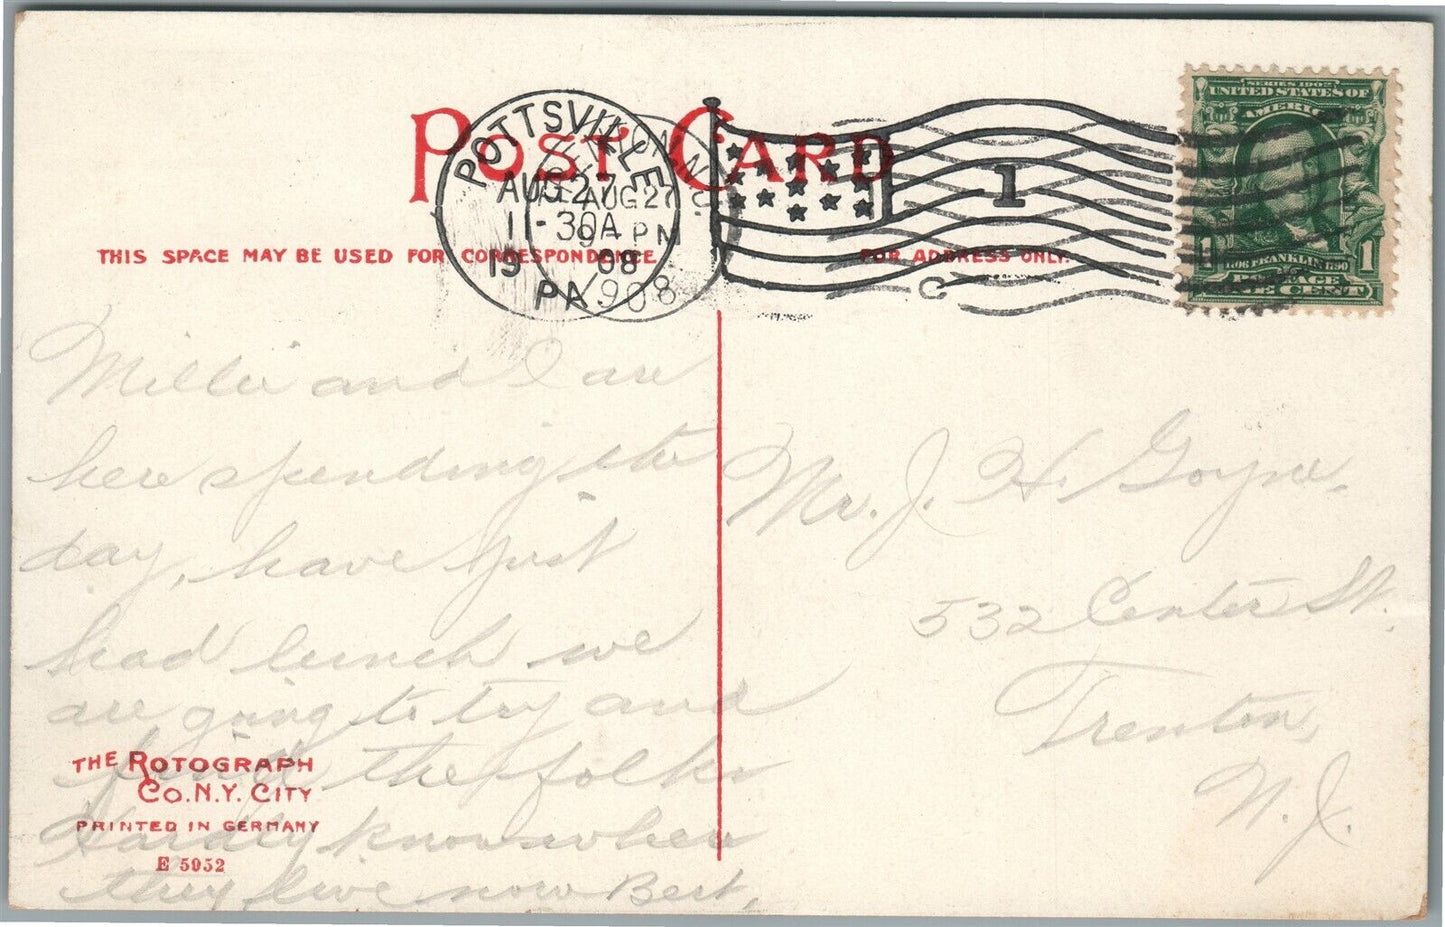 POST CARD
POTTSVILLE
AUG 27
11-30A
1908
PA
AUG 27
9- PM
1908
1
SERIES 1902
UNITED STATES OF
AMERICA
1 1
1706 FRANKLIN 1790
POSTAGE
ONE CENT
THIS SPACE MAY BE USED FOR CORRESPONDENCE
FOR ADDRESS ONLY.
Millie and I are
here spending the
day, have just
had lunch we
are going to try and
find the folks
Hardly know where
they live now Bert,
Mr. J. H. Goyne.
532 Center St.
Trenton,
N. J.
THE ROTOGRAPH
CO. N.Y. CITY
PRINTED IN GERMANY
E 5952